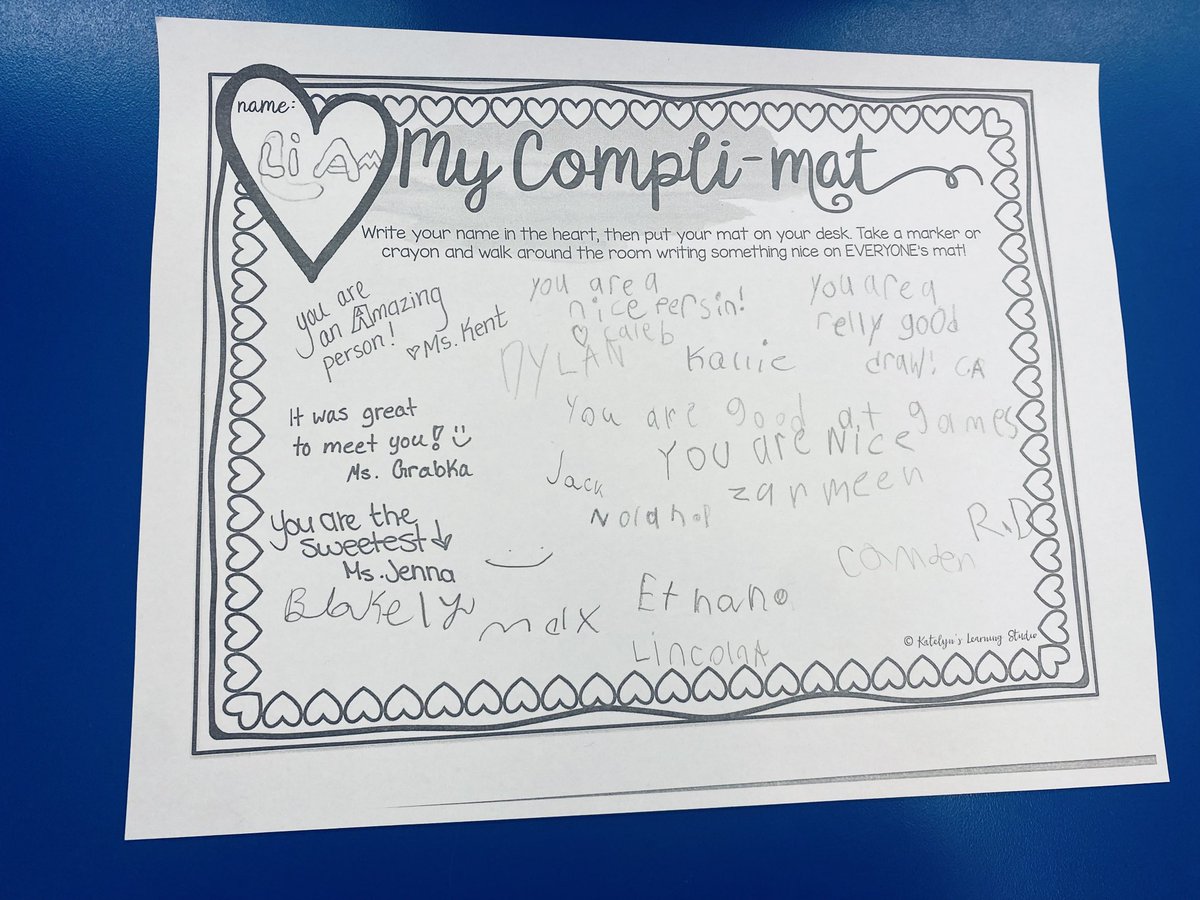 name:
LiAm
My Compli-mat
Write your name in the heart, then put your mat on your desk. Take a marker or
crayon and walk around the room writing something nice on EVERYONE's mat!
you are
an Amazing
person!
♡Ms. Kent
you are a
nice persin!
♡ caleb
You are a
relly good
draw! CA
DYLAN
Kallie
It was great
to meet you!
Ms. Grabka
You are good at games
You are Nice
zarmeen
Jack
You are the
sweetest
Ms. Jenna
R.D
Camden
Blakely
max
Ethano
LincolnA
© Katelyn's Learning Studio